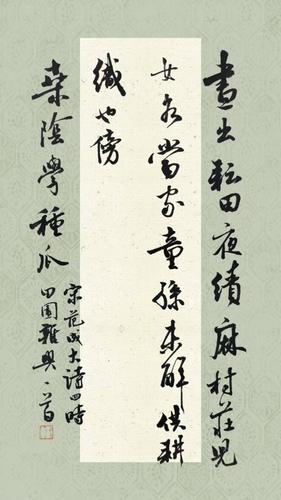 昼出耘田夜绩麻村莊兒
女各當家童孫未解供耕
織也傍
桑陰學種瓜
宋范成大詩四時
田園雜興一首